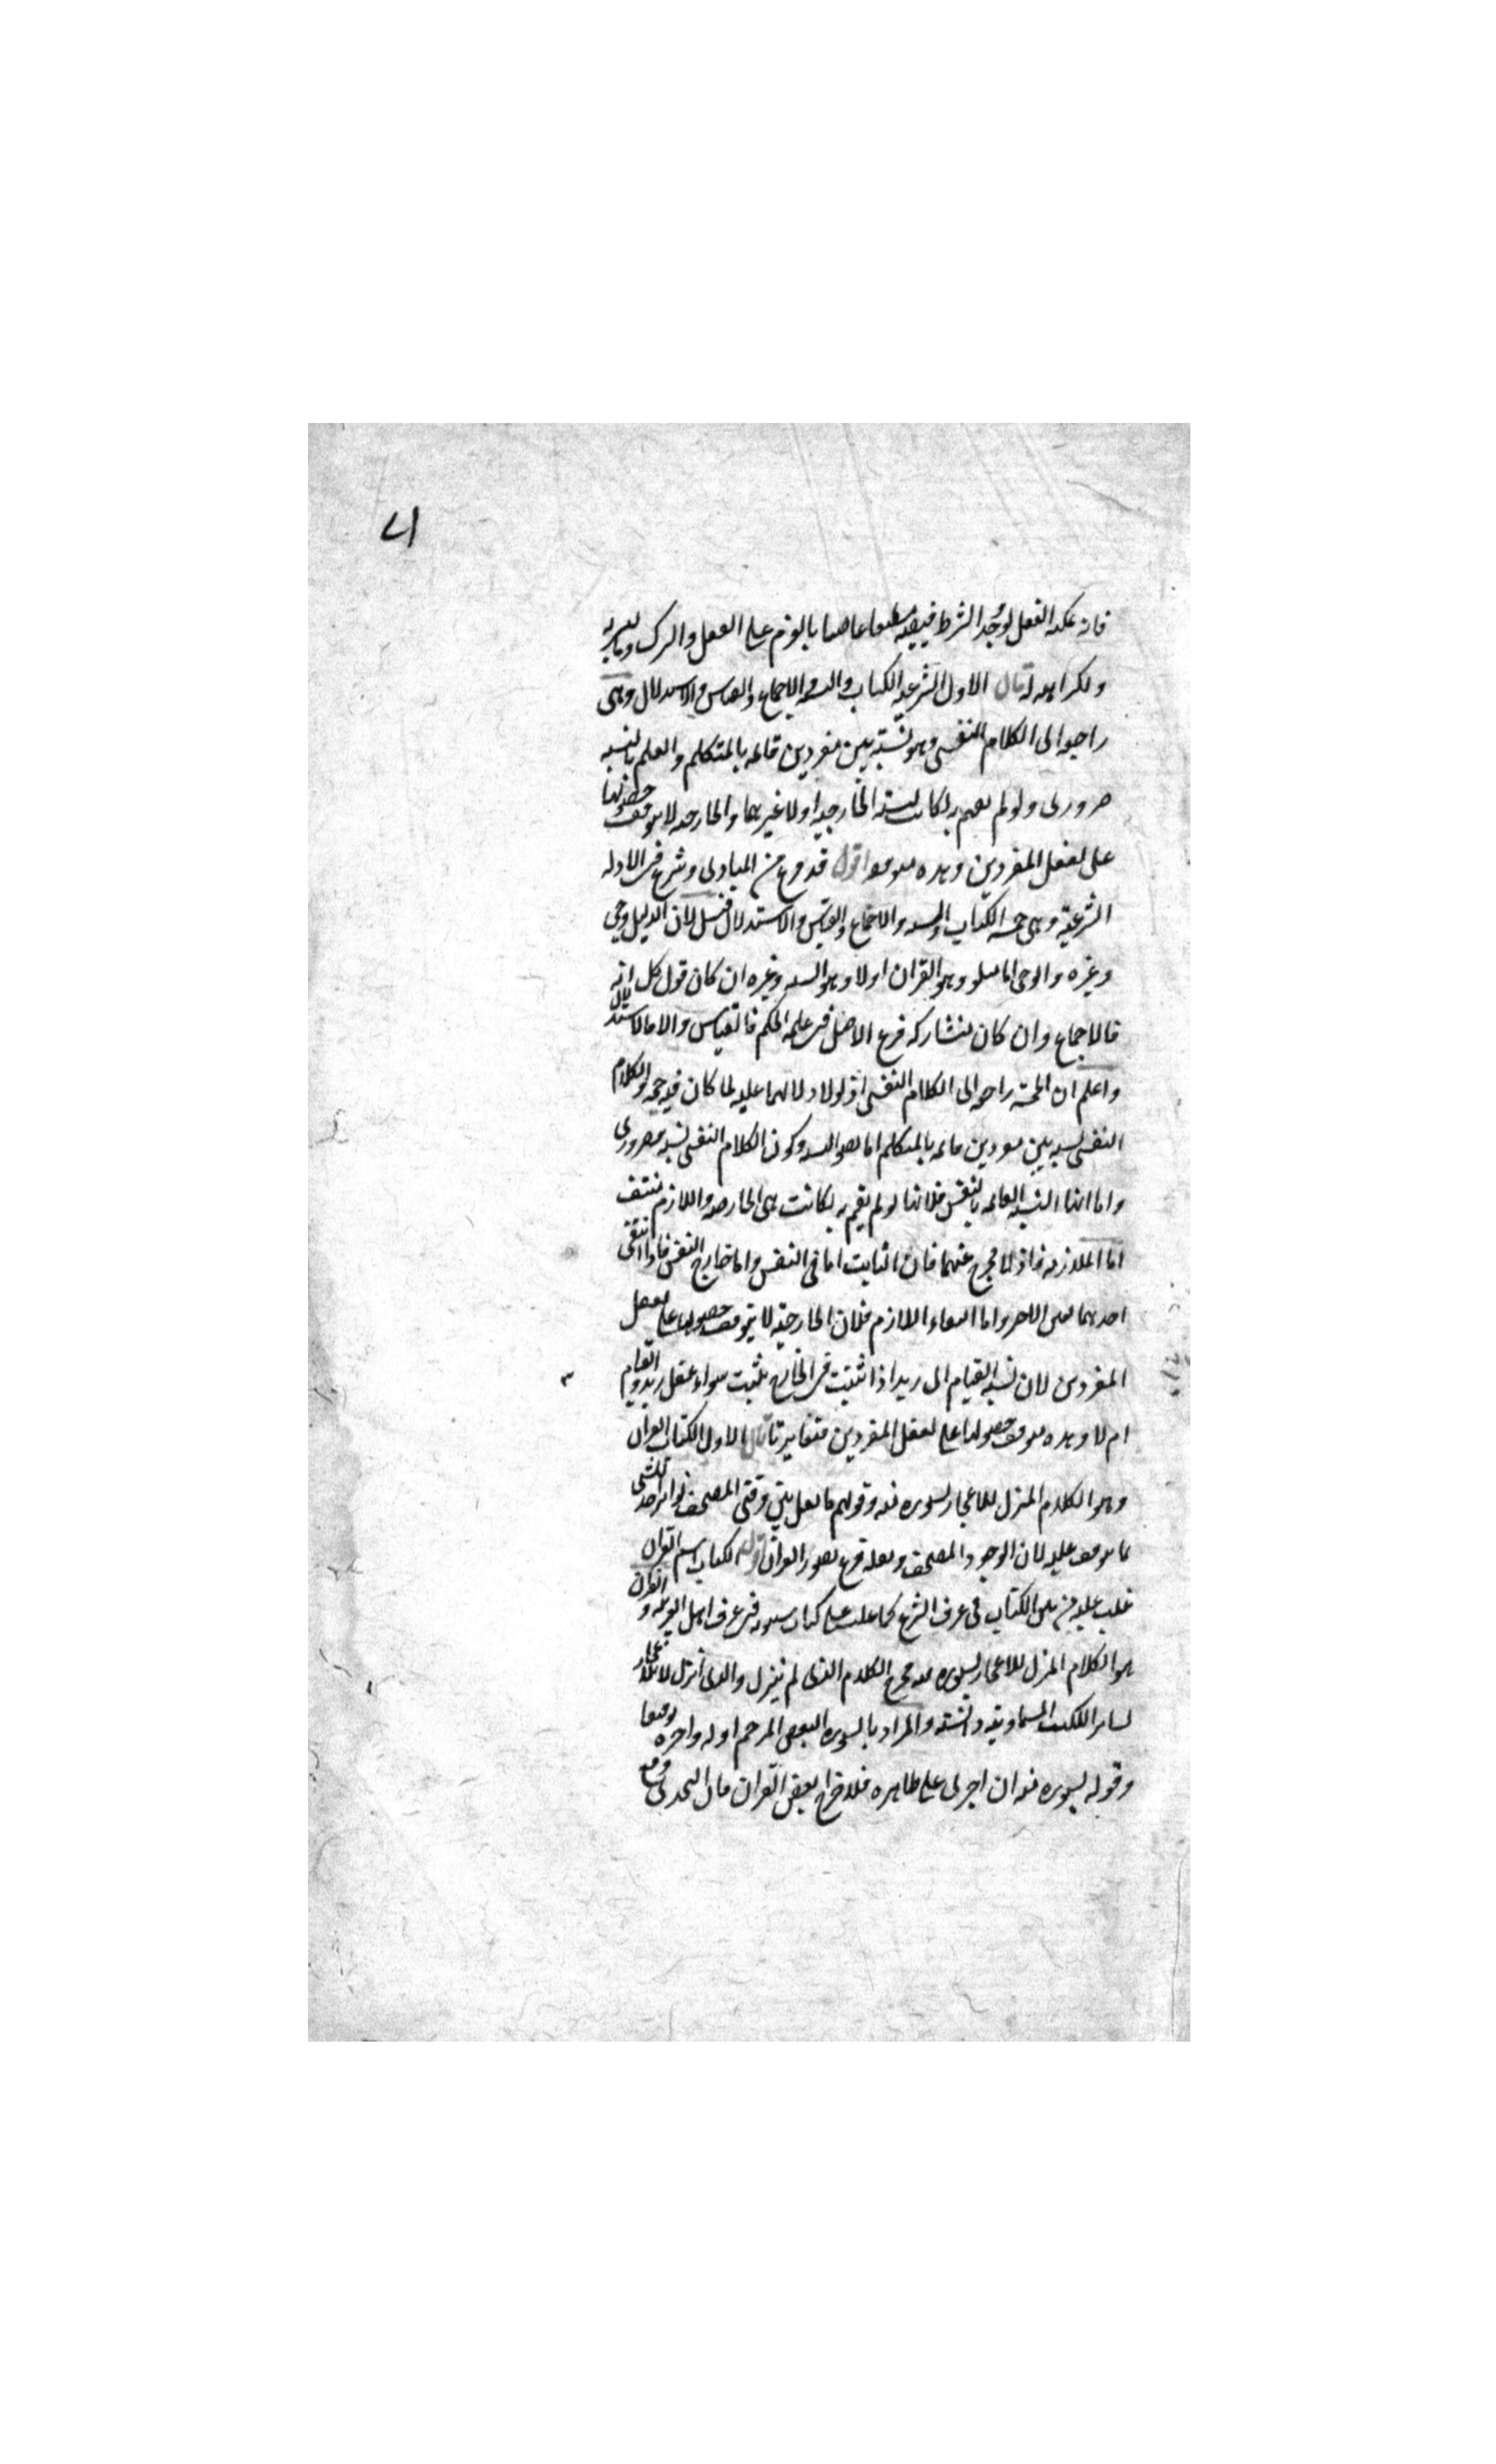 ٧١
فانه يمكنه الفعل لو وجد الشرط فيصير مطيعا عاصيا بالعزم على الفعل والترك وبالبشر به
ولكراهه له قال الاول الشرعيه الكتاب والسنه والاجماع والقياس والاستدلال وهى
راجعه الى الكلام النفسى وهو نسبة بين مفردين قائمه بالمتكلم والعلم بالنسبه
ضرورى ولو لم تقم به لكانت النسبه الخارجيه اولا غيرهما والخارجيه لا يتوقف حصولها
على تعقل المفردين وهذه متوقفه اقول قد فرغ من المبادى وشرع فى الادله
الشرعية وهى خمسه الكتاب والسنه والاجماع والقياس والاستدلال قيل لان الدليل وحى
وغيره والوحى اما متلو وهو القران اولا وهو السنه وغيره ان كان قول كل امه
فالاجماع وان كان مشاركه فرع الاصل فى علة الحكم فالقياس والا فالاستدلال
واعلم ان الخمسه راجعه الى الكلام النفسى اذ لولا دلالتها عليه لما كان فيه حجه والكلام
النفسى نسبه بين مفردين قائمه بالمتكلم اما تصور النسبه وكون الكلام النفسى نسبه ضرورى
واما ان النسبه القائمه بالنفس فلانها لو لم تقم به لكانت هى الخارجيه واللازم منتف
اما الملازمه فاذ لا مخرج عنهما فان الثابت اما فى النفس واما خارج النفس فاذا انتفى
احدهما تعين الاخر واما انتفاء اللازم فلان الخارجية لا يتوقف حصولها على تعقل
المفردين لان نسبة القيام الى زيد اذا ثبتت فى الخارج ثبتت سواء عقل زيد والقيام
ام لا وهذه متوقف حصولها على تعقل المفردين متغايرتان قال الاول الكتاب القران
وهو الكلام المنزل للاعجاز بسوره منه وقولهم ما نقل بين دفتى المصحف تواترا حد للشى
بما يتوقف عليه لان الوجود المصحف ونقله فرع تصور القران اقول الكتاب اسم القران
غلب عليه من بين الكتاب فى عرف الشرع كما غلب على كتاب سيبويه فى عرف اهل العربيه والقران
هو الكلام المنزل للاعجاز بسوره منه فخرج الكلام الذى لم ينزل والذى انزل لا للاعجاز
كسائر الكتب السماوية والسنه والمراد بالسوره البعض المترجم اوله واخره توقيفا
وقوله بسوره منه ان اجرى على ظاهره فلاخراج بعض القران فان التحدى وقع